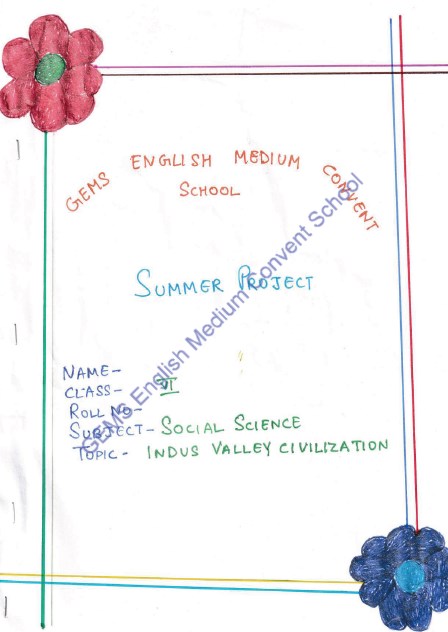 GEMS ENGLISH MEDIUM CONVENT
SCHOOL
SUMMER PROJECT
NAME-
CLASS- VI
ROLL NO-
SUBJECT- SOCIAL SCIENCE
TOPIC- INDUS VALLEY CIVILIZATION
GEMS English Medium Convent School